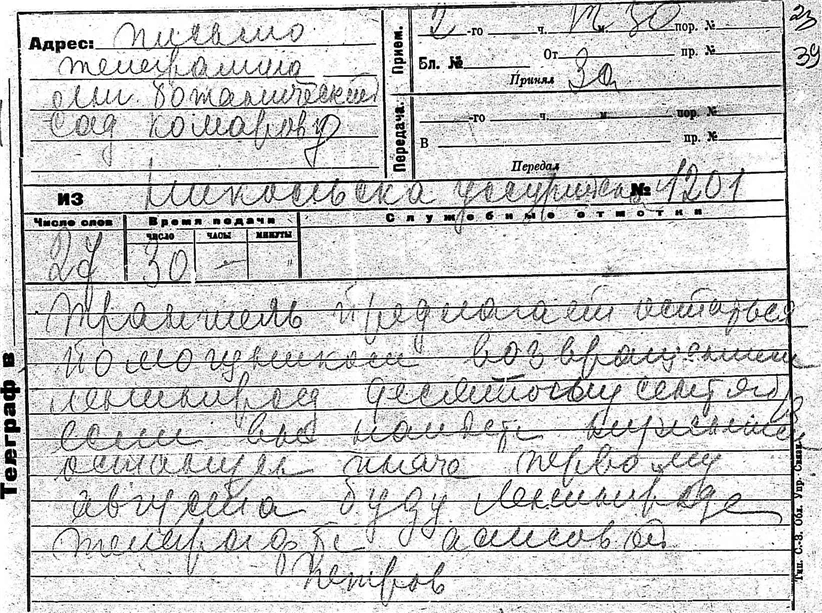 Адрес: письмо
телеграмма
Ботанический
сад Комарову
Прием.
2 -го ч. м 30 пор. №
23
Бл. № От пр. №
39
Принял За
Передача.
-го ч. м. пор. №
В пр. №
Передал
ИЗ Никольска Уссурийска № 1201
Число слов
Время подачи
Служебные отмотки
ЧИСЛО ЧАСЫ МИНУТЫ
27 30 — "
Траншель предлагает остаться
помощником возвращением
Ленинград десятому сентября
если вы найдете
останусь иначе первому
августа буду Ленинграде
телеграфьте Алисовой
Петров
Телеграф в
Тип. С.-З. Обл. Упр. Связи.